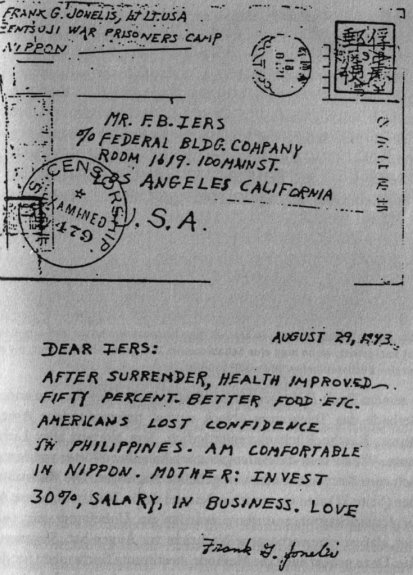 FRANK G. JONELIS, LT.USA
ENTSUJI WAR PRISONERS CAMP
NIPPON
俘虜
郵便
MR. F.B. IERS
% FEDERAL BLDG. COMPANY
ROOM 1619. 100 MAIN ST.
LOS ANGELES CALIFORNIA
U.S.A.
U.S. CENSORSHIP
EXAMINED
AUGUST 29, 1943.
DEAR IERS:
AFTER SURRENDER, HEALTH IMPROVED
FIFTY PERCENT. BETTER FOOD ETC.
AMERICANS LOST CONFIDENCE
IN PHILIPPINES. AM COMFORTABLE
IN NIPPON. MOTHER: INVEST
30%, SALARY, IN BUSINESS. LOVE
Frank G. Jonelis